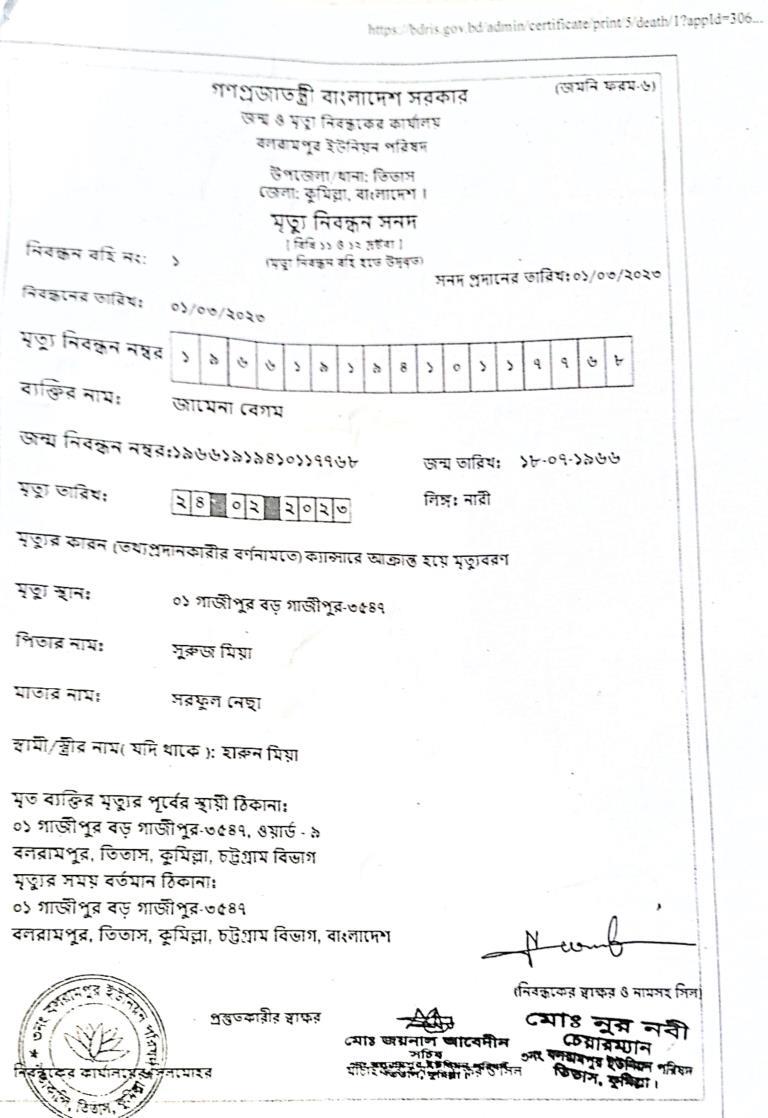 https://bdris.gov.bd/admin/certificate/print/5/death/1?appId=306...
গণপ্রজাতন্ত্রী বাংলাদেশ সরকার
(জমনি ফরম-৬)
জন্ম ও মৃত্যু নিবন্ধকের কার্যালয়
বলরামপুর ইউনিয়ন পরিষদ
উপজেলা/থানা: তিতাস
জেলা: কুমিল্লা, বাংলাদেশ ।
মৃত্যু নিবন্ধন সনদ
[ বিধি ১১ ও ১২ দ্রষ্টব্য ]
(মৃত্যু নিবন্ধন বহি হতে উদ্ধৃত)
নিবন্ধন বহি নং: ১
সনদ প্রদানের তারিখ: ০১/০৩/২০২৩
নিবন্ধনের তারিখ: ০১/০৩/২০২৩
মৃত্যু নিবন্ধন নম্বর ১ ৯ ৬ ৬ ১ ৯ ১ ৯ ৪ ১ ০ ১ ১ ৭ ৭ ৬ ৮
ব্যক্তির নাম: জামেনা বেগম
জন্ম নিবন্ধন নম্বর: ১৯৬৬১৯১৯৪১০১১৭৭৬৮ জন্ম তারিখ: ১৮-০৭-১৯৬৬
মৃত্যু তারিখ: ২৪ ০২ ২০২৩ লিঙ্গ: নারী
মৃত্যুর কারন (তথ্যপ্রদানকারীর বর্ণনামতে) ক্যান্সারে আক্রান্ত হয়ে মৃত্যুবরণ
মৃত্যু স্থান: ০১ গাজীপুর বড় গাজীপুর-৩৫৪৭
পিতার নাম: সুরুজ মিয়া
মাতার নাম: সরফুল নেছা
স্বামী/স্ত্রীর নাম( যদি থাকে ): হারুন মিয়া
মৃত ব্যক্তির মৃত্যুর পূর্বের স্থায়ী ঠিকানা:
০১ গাজীপুর বড় গাজীপুর-৩৫৪৭, ওয়ার্ড - ৯
বলরামপুর, তিতাস, কুমিল্লা, চট্টগ্রাম বিভাগ
মৃত্যুর সময় বর্তমান ঠিকানা:
০১ গাজীপুর বড় গাজীপুর-৩৫৪৭
বলরামপুর, তিতাস, কুমিল্লা, চট্টগ্রাম বিভাগ, বাংলাদেশ
(নিবন্ধকের স্বাক্ষর ও নামসহ সিল)
প্রস্তুতকারীর স্বাক্ষর
মোঃ জয়নাল আবেদীন
সচিব
মোঃ নুর নবী
চেয়ারম্যান
৩নং বলরামপুর ইউনিয়ন পরিষদ
তিতাস, কুমিল্লা ।
নিবন্ধকের কার্যালয়ের সিলমোহর